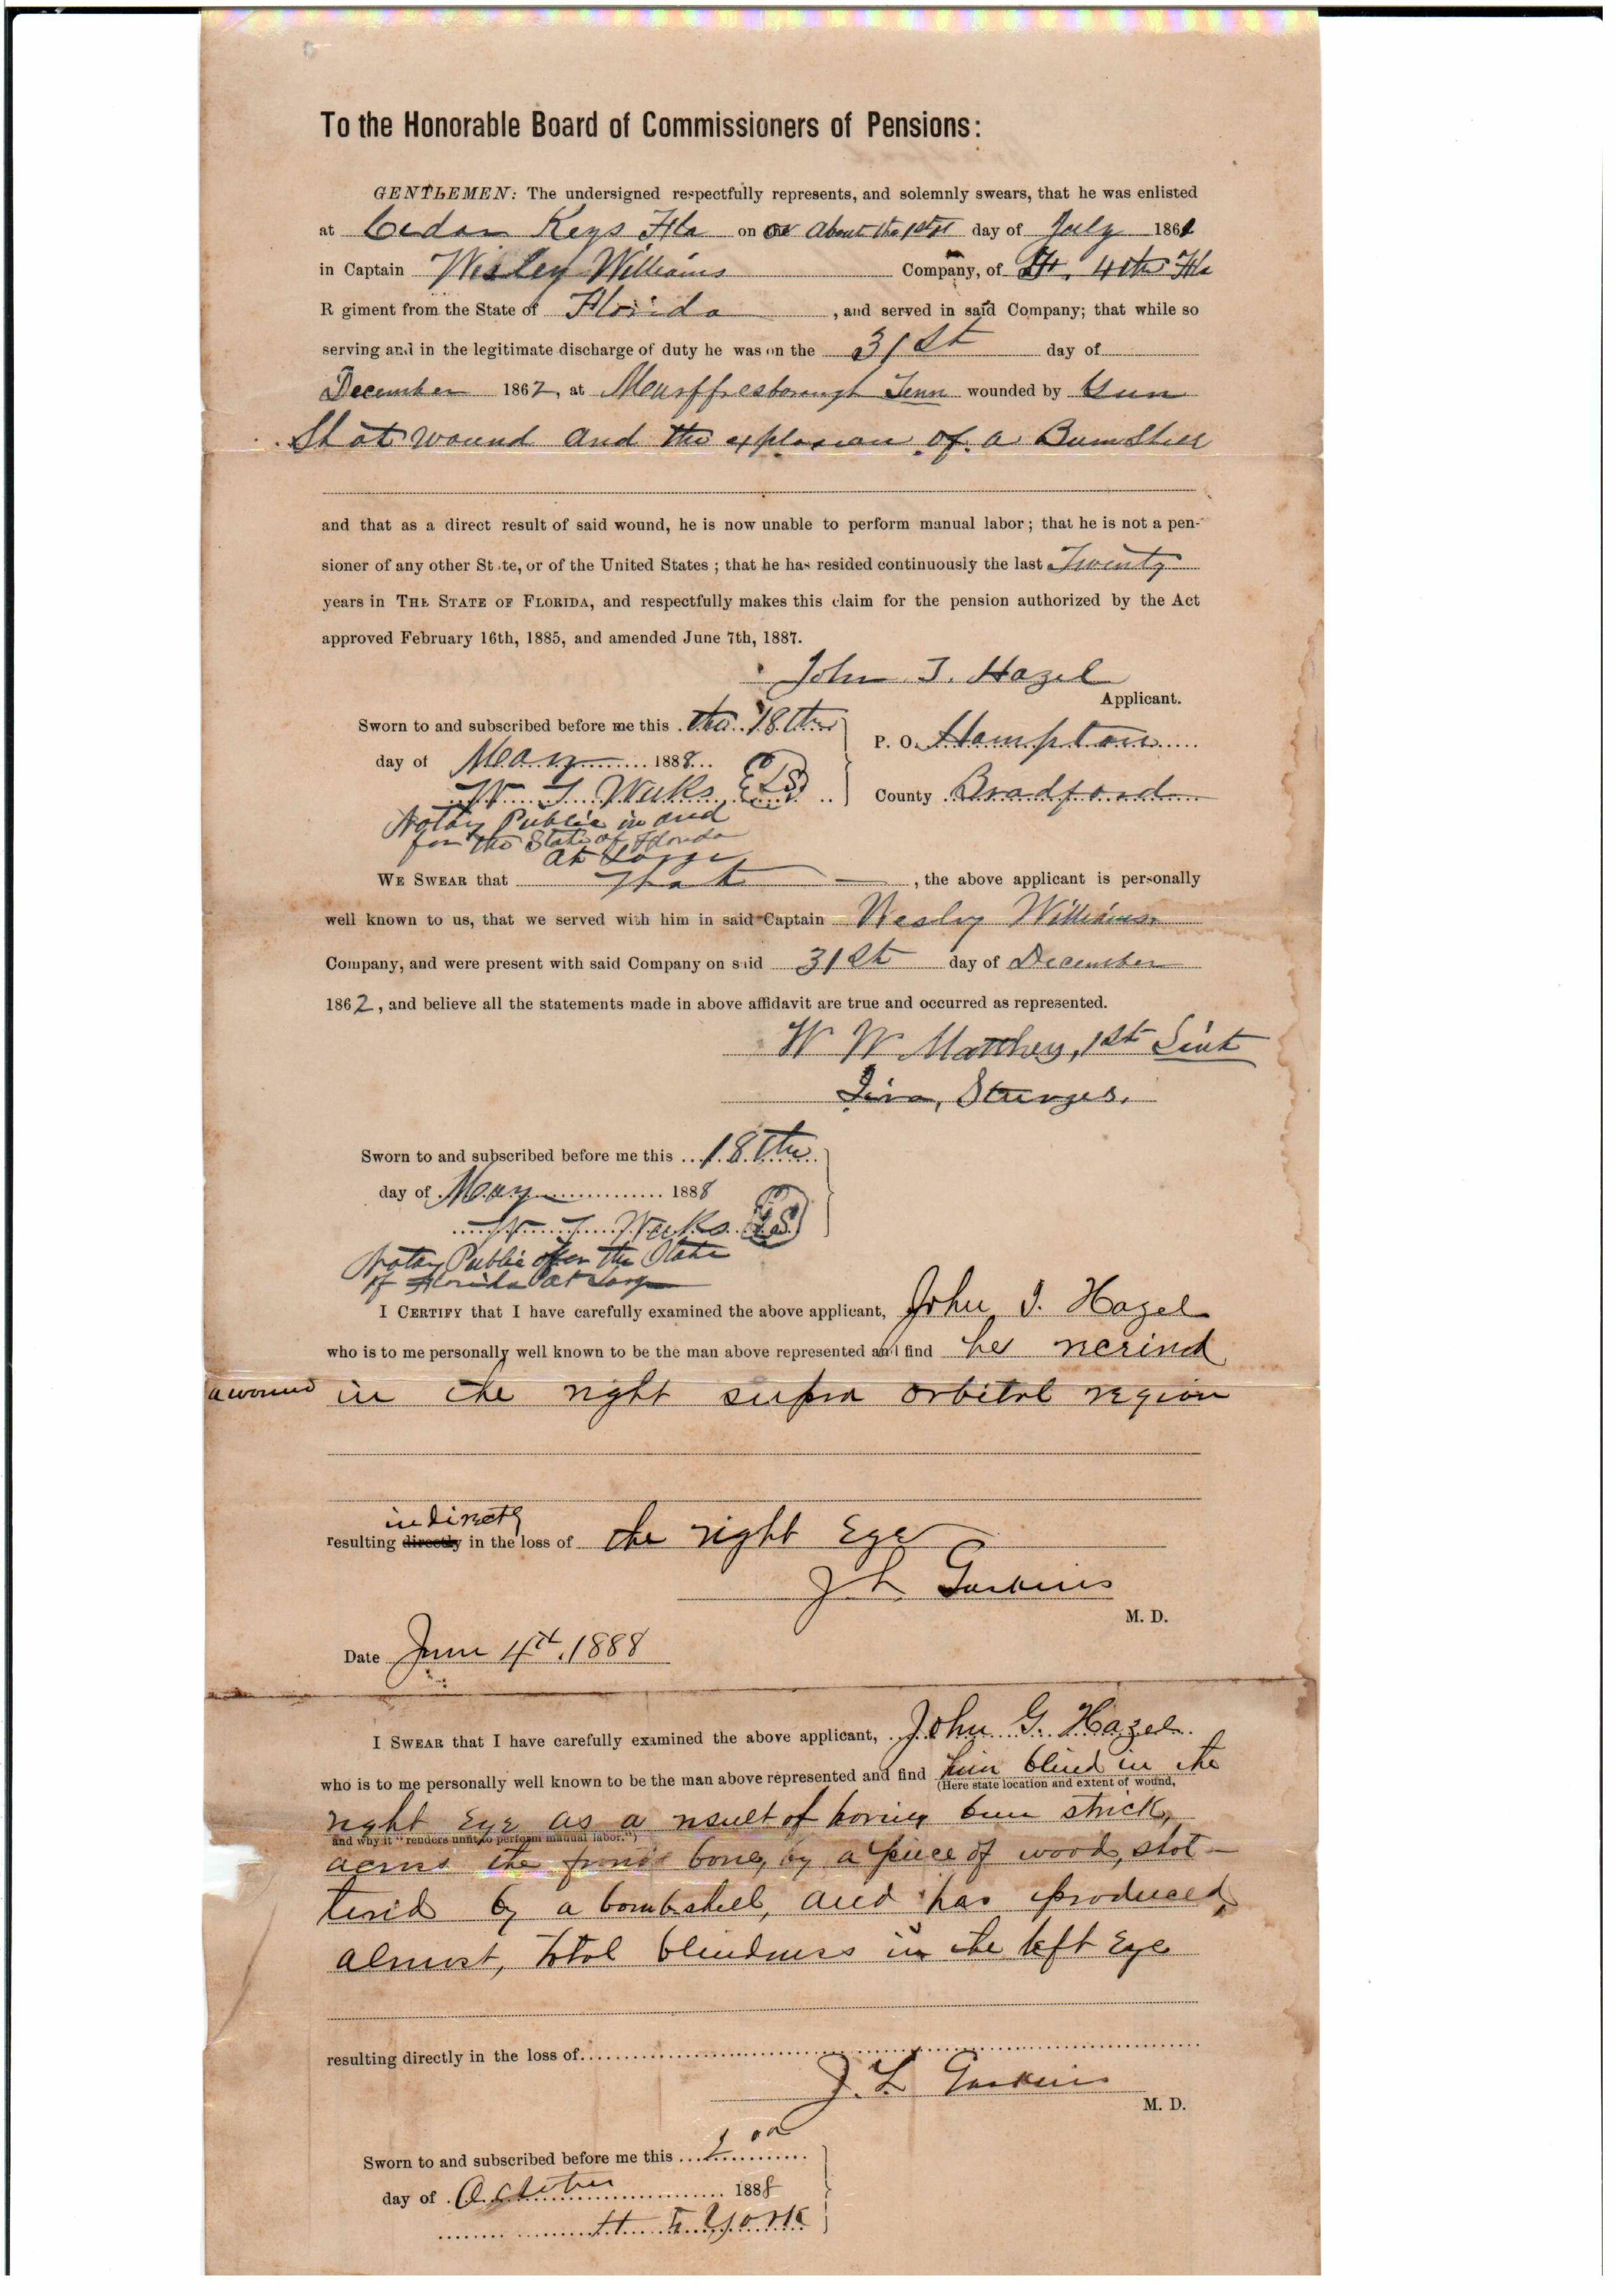 To the Honorable Board of Commissioners of Pensions:
GENTLEMEN: The undersigned respectfully represents, and solemnly swears, that he was enlisted
at Cedar Keys Fla on or about the 1st day of July 1861
in Captain Wesley Williams Company, of H. 4th Fla
R giment from the State of Florida, and served in said Company; that while so
serving and in the legitimate discharge of duty he was on the 31st day of
December 1862, at Mourffresborough Tenn wounded by Gun
Shot wound and the explosion of a Bum Shell
and that as a direct result of said wound, he is now unable to perform manual labor; that he is not a pen-
sioner of any other St te, or of the United States; that he has resided continuously the last Twenty
years in THE STATE OF FLORIDA, and respectfully makes this claim for the pension authorized by the Act
approved February 16th, 1885, and amended June 7th, 1887.
John T. Hazel
Applicant.
Sworn to and subscribed before me this the 18th
day of May 1888
W T Weeks LS
Notary Public in and
for the State of Florida
at Large
P. O. Hampton
County Bradford
WE SWEAR that That, the above applicant is personally
well known to us, that we served with him in said Captain Wesley Williams
Company, and were present with said Company on said 31st day of December
1862, and believe all the statements made in above affidavit are true and occurred as represented.
W W Matthey, 1st Lint
Sturges.
Sworn to and subscribed before me this 18th
day of May 1888
W T Weeks LS
Notary Public for the State
of Florida at Large
I CERTIFY that I have carefully examined the above applicant, John I. Hazel
who is to me personally well known to be the man above represented and find he received
a wound in the right supra orbital region
indirectly
resulting directly in the loss of the right Eye
J L Gaskins
M. D.
Date June 4th, 1888
I SWEAR that I have carefully examined the above applicant, John G. Hazel
who is to me personally well known to be the man above represented and find him blind in the
(Here state location and extent of wound,
right Eye as a result of having been strick,
and why it "renders unfit to perform manual labor.")
across the front bone, by a piece of wood, shot-
terid by a bombshell, and has produced
almost, total blindness in the left Eye
resulting directly in the loss of
J. L Gaskins
M. D.
Sworn to and subscribed before me this 2nd
day of October 1888
H F York